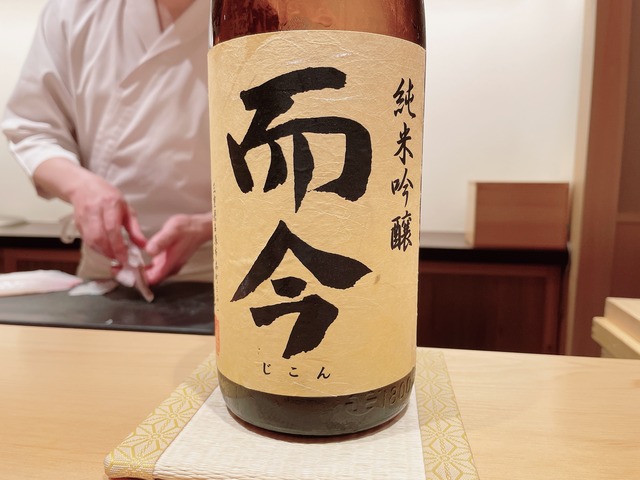 純米吟醸
而今
じこん
1800